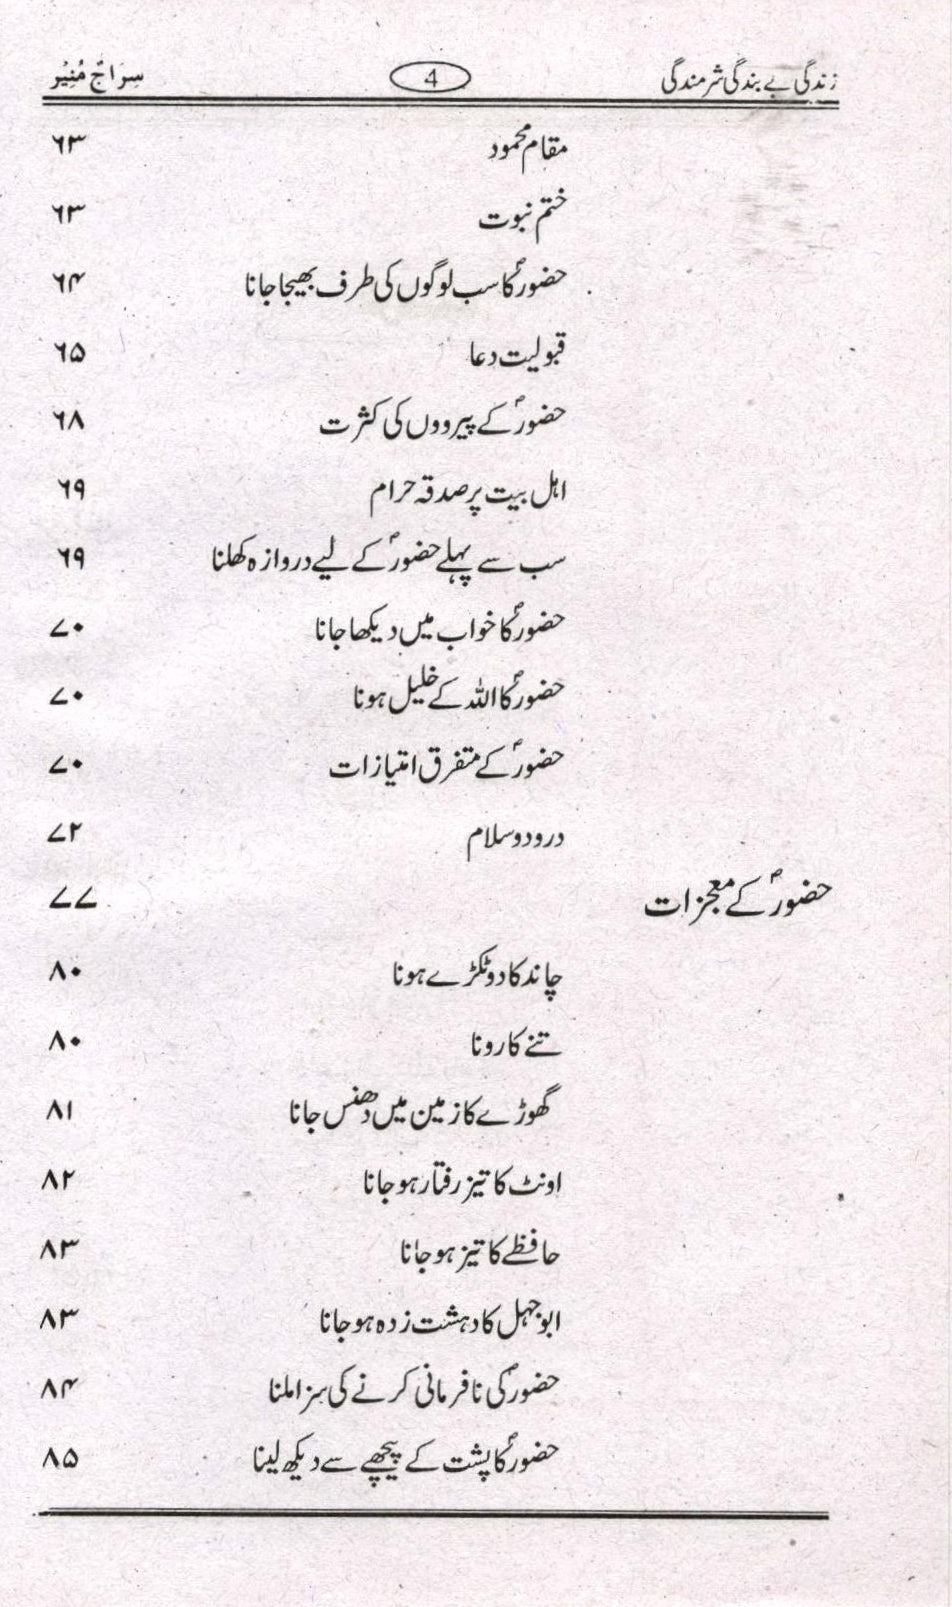 زندگی بے بندگی شرمندگی 4 سِرَاجٌ مُّنِیْر
مقام محمود ۶۳
ختم نبوت ۶۳
حضورؐ کا سب لوگوں کی طرف بھیجا جانا ۶۴
قبولیت دعا ۶۵
حضورؐ کے پیرووں کی کثرت ۶۸
اہل بیت پر صدقہ حرام ۶۹
سب سے پہلے حضورؐ کے لیے دروازہ کھلنا ۶۹
حضورؐ کا خواب میں دیکھا جانا ۷۰
حضورؐ کا اللہ کے خلیل ہونا ۷۰
حضورؐ کے متفرق امتیازات ۷۰
درود و سلام ۷۲
حضورؐ کے معجزات ۷۷
چاند کا دو ٹکڑے ہونا ۸۰
تنے کا رونا ۸۰
گھوڑے کا زمین میں دھنس جانا ۸۱
اونٹ کا تیز رفتار ہو جانا ۸۲
حافظے کا تیز ہو جانا ۸۳
ابو جہل کا دہشت زدہ ہو جانا ۸۳
حضورؐ کی نافرمانی کرنے کی سزا ملنا ۸۴
حضورؐ کا پشت کے پیچھے سے دیکھ لینا ۸۵